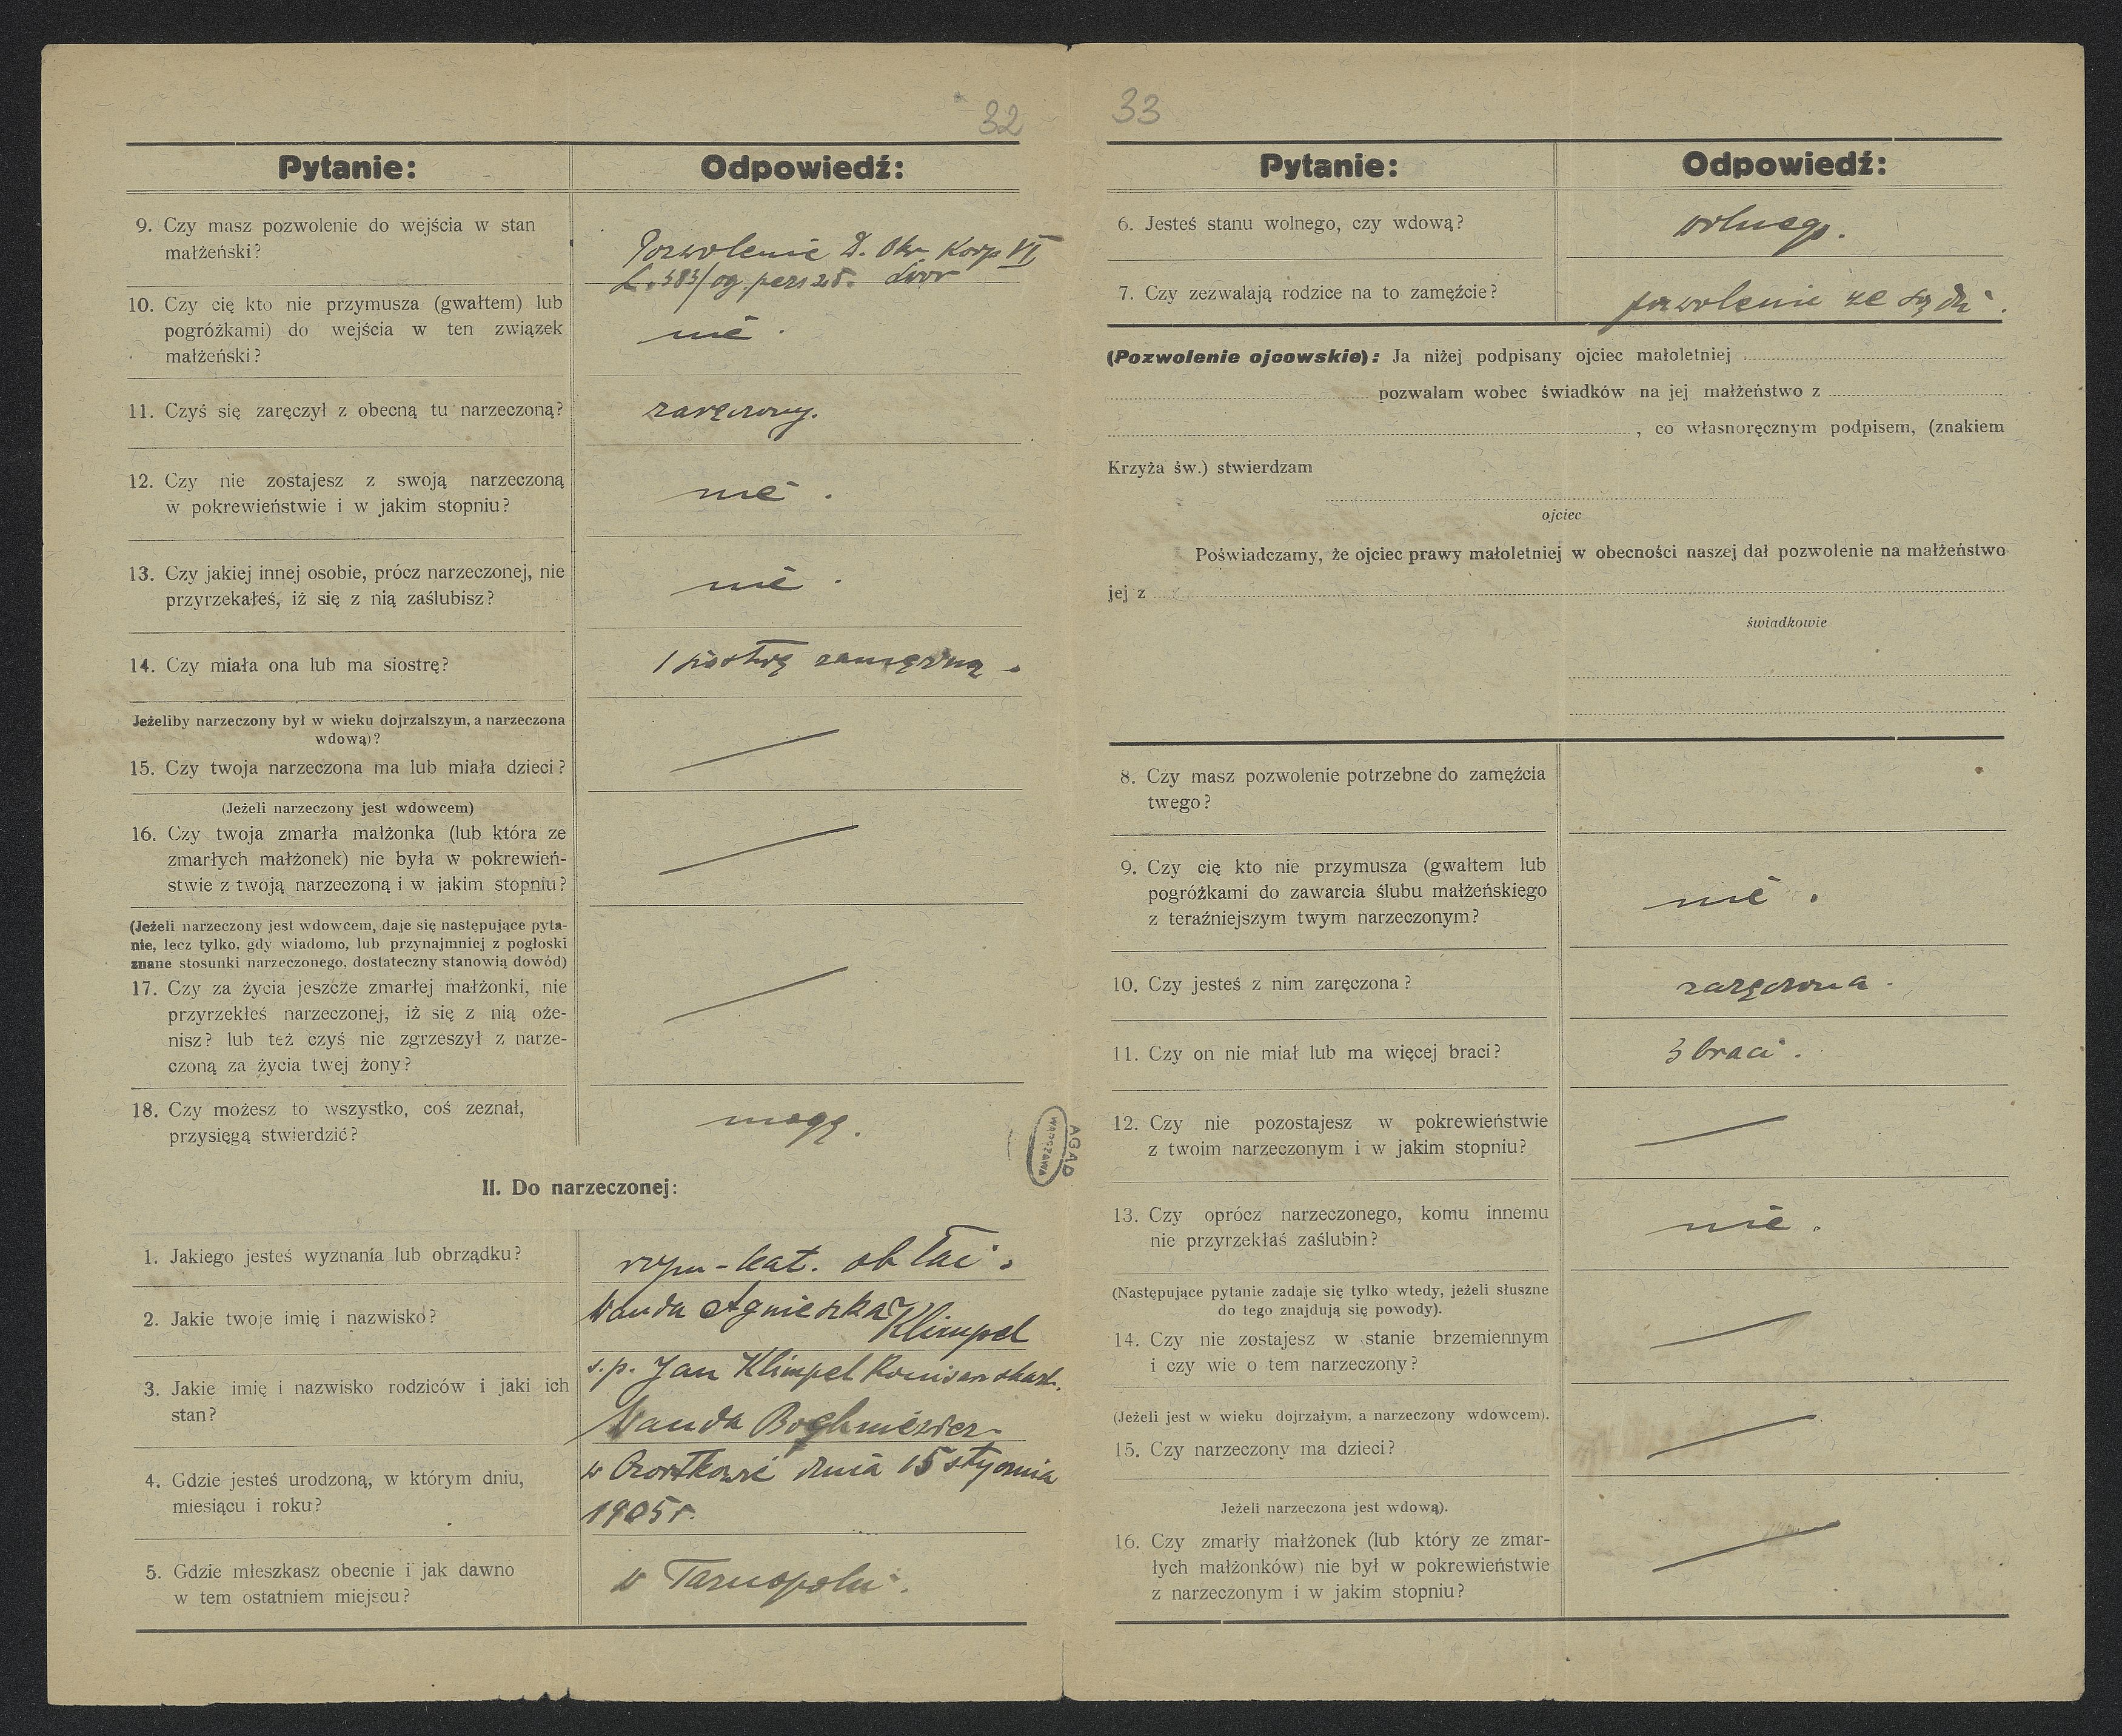 32
Pytanie:
Odpowiedź:
9. Czy masz pozwolenie do wejścia w stan
małżeński?
Pozwolenie D. Okr. Korp VI
L. 383/og. pers 25.
10. Czy cię kto nie przymusza (gwałtem) lub
pogróżkami) do wejścia w ten związek
małżeński?
nie.
11. Czyś się zaręczył z obecną tu narzeczoną?
zaręczony.
12. Czy nie zostajesz z swoją narzeczoną
w pokrewieństwie i w jakim stopniu?
nie.
13. Czy jakiej innej osobie, prócz narzeczonej, nie
przyrzekałeś, iż się z nią zaślubisz?
nie.
14. Czy miała ona lub ma siostrę?
1 siostrę zamężną.
Jeżeliby narzeczony był w wieku dojrzalszym, a narzeczona
wdową)?
15. Czy twoja narzeczona ma lub miała dzieci?
(Jeżeli narzeczony jest wdowcem)
16. Czy twoja zmarła małżonka (lub która ze
zmarłych małżonek) nie była w pokrewień-
stwie z twoją narzeczoną i w jakim stopniu?
(Jeżeli narzeczony jest wdowcem, daje się następujące pyta-
nie, lecz tylko, gdy wiadomo, lub przynajmniej z pogłoski
znane stosunki narzeczonego, dostateczny stanowią dowód)
17. Czy za życia jeszcze zmarłej małżonki, nie
przyrzekłeś narzeczonej, iż się z nią oże-
nisz? lub też czyś nie zgrzeszył z narze-
czoną za życia twej żony?
18. Czy możesz to wszystko, coś zeznał,
przysięgą stwierdzić?
mogę.
II. Do narzeczonej:
1. Jakiego jesteś wyznania lub obrządku?
rzym-kat. ob łac.
2. Jakie twoje imię i nazwisko?
Wanda Agnieszka
Klimpel
3. Jakie imię i nazwisko rodziców i jaki ich
stan?
ś.p. Jan Klimpel Komisarz skarb.
Wanda
4. Gdzie jesteś urodzoną, w którym dniu,
miesiącu i roku?
w Czortkowie dnia 15 stycznia
1905 r.
5. Gdzie mieszkasz obecnie i jak dawno
w tem ostatniem miejscu?
w Tarnopolu.
AGAD
WARSZAWA
33
Pytanie:
Odpowiedź:
6. Jesteś stanu wolnego, czy wdową?
wolnego.
7. Czy zezwalają rodzice na to zamęźcie?
pozwolenie ze sądu.
(Pozwolenie ojcowskie): Ja niżej podpisany ojciec małoletniej
pozwalam wobec świadków na jej małżeństwo z
, co własnoręcznym podpisem, (znakiem
Krzyża św.) stwierdzam
ojciec
Poświadczamy, że ojciec prawy małoletniej w obecności naszej dał pozwolenie na małżeństwo
jej z
świadkowie
8. Czy masz pozwolenie potrzebne do zamęźcia
twego?
9. Czy cię kto nie przymusza (gwałtem lub
pogróżkami do zawarcia ślubu małżeńskiego
z teraźniejszym twym narzeczonym?
nie.
10. Czy jesteś z nim zaręczona?
zaręczona.
11. Czy on nie miał lub ma więcej braci?
3 braci.
12. Czy nie pozostajesz w pokrewieństwie
z twoim narzeczonym i w jakim stopniu?
13. Czy oprócz narzeczonego, komu innemu
nie przyrzekłaś zaślubin?
nie.
(Następujące pytanie zadaje się tylko wtedy, jeżeli słuszne
do tego znajdują się powody).
14. Czy nie zostajesz w stanie brzemiennym
i czy wie o tem narzeczony?
(Jeżeli jest w wieku dojrzałym, a narzeczony wdowcem).
15. Czy narzeczony ma dzieci?
Jeżeli narzeczona jest wdową).
16. Czy zmarły małżonek (lub który ze zmar-
łych małżonków) nie był w pokrewieństwie
z narzeczonym i w jakim stopniu?